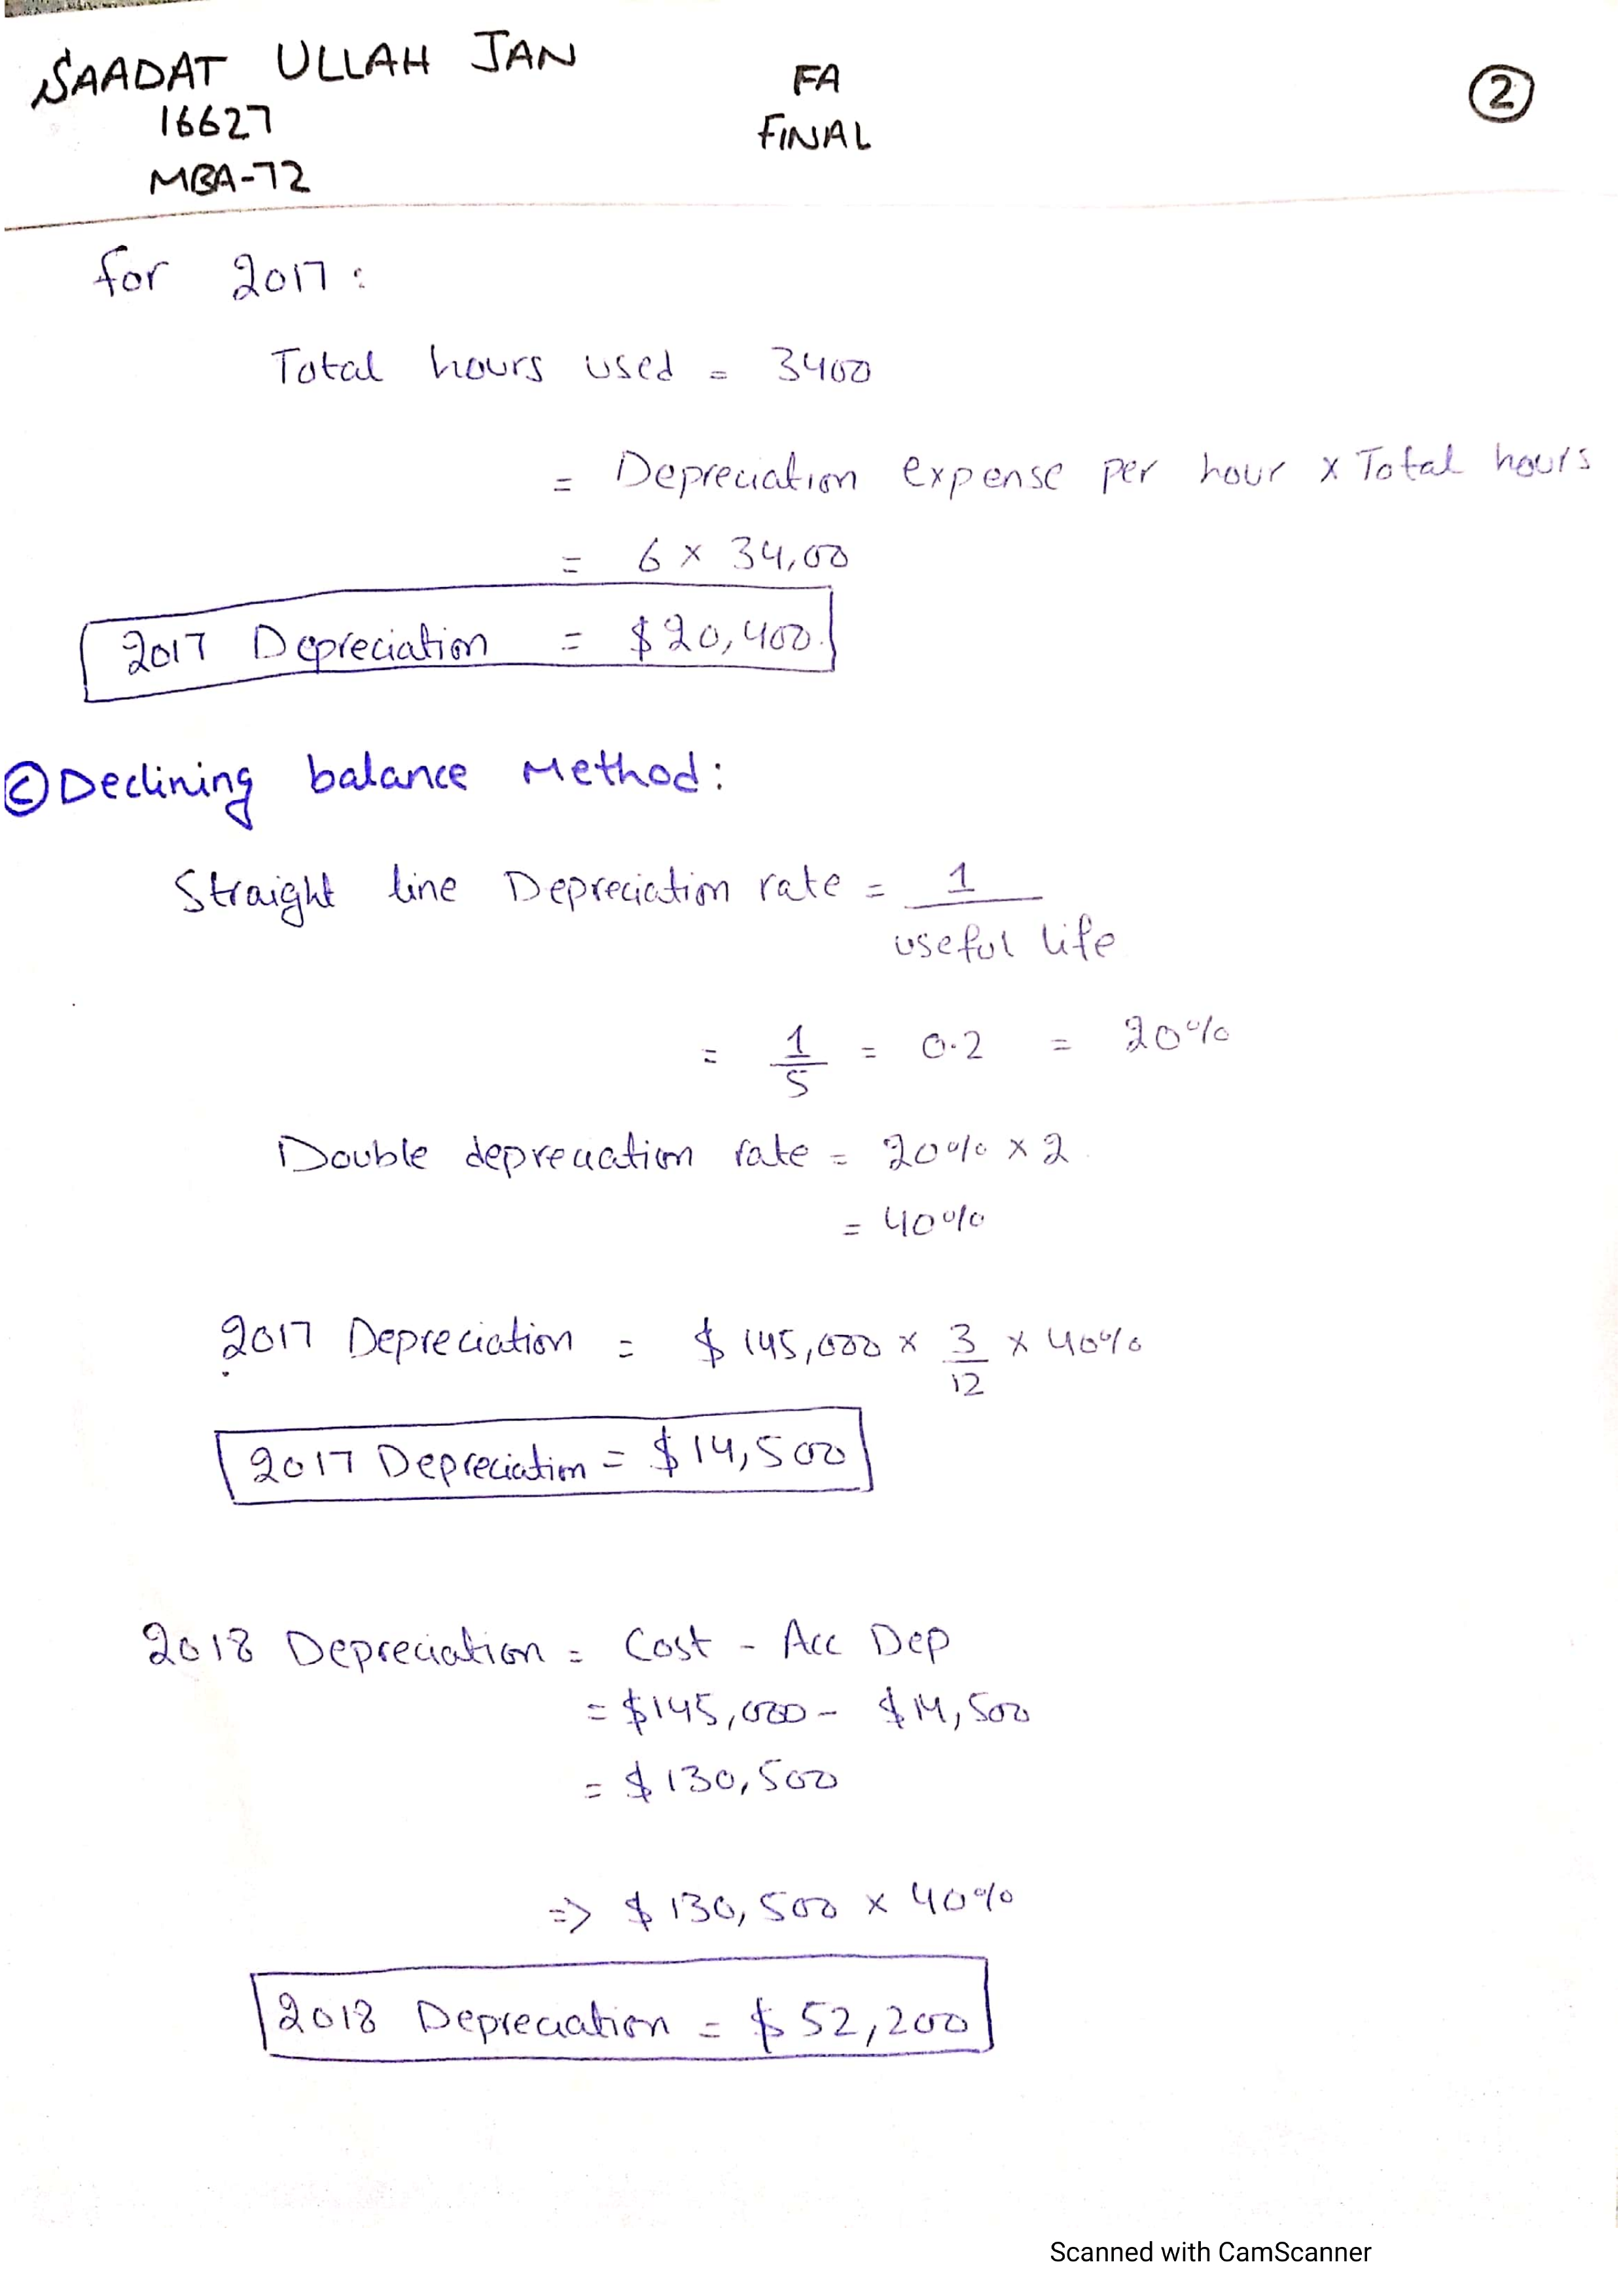 SAADAT ULLAH JAN
16627
MBA-72
FA
FINAL
2
for 2017:
Total hours used = 3400
= Depreciation expense per hour x Total hours
= 6 x 34,00
2017 Depreciation = $20,400.
C Declining balance Method:
Straight line Depreciation rate = 1
useful life
= 1/5 = 0.2 = 20%
Double depreciation rate = 20% x 2
= 40%
2017 Depreciation = $145,000 x 3/12 x 40%
2017 Depreciation = $14,500
2018 Depreciation = Cost - Acc Dep
= $145,000 - $14,500
= $130,500
=> $130,500 x 40%
2018 Depreciation = $52,200
Scanned with CamScanner